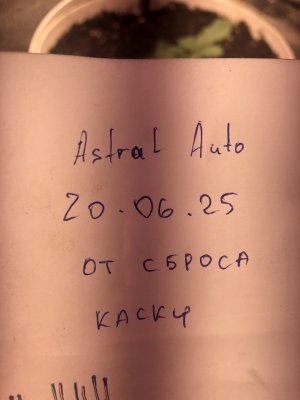 Astral Auto
20.06.25
ОТ СБРОСА
КАСКУ